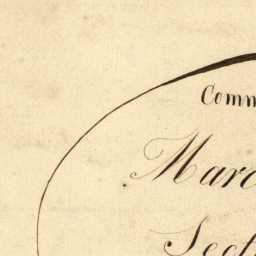 Comm
Marc
Sect